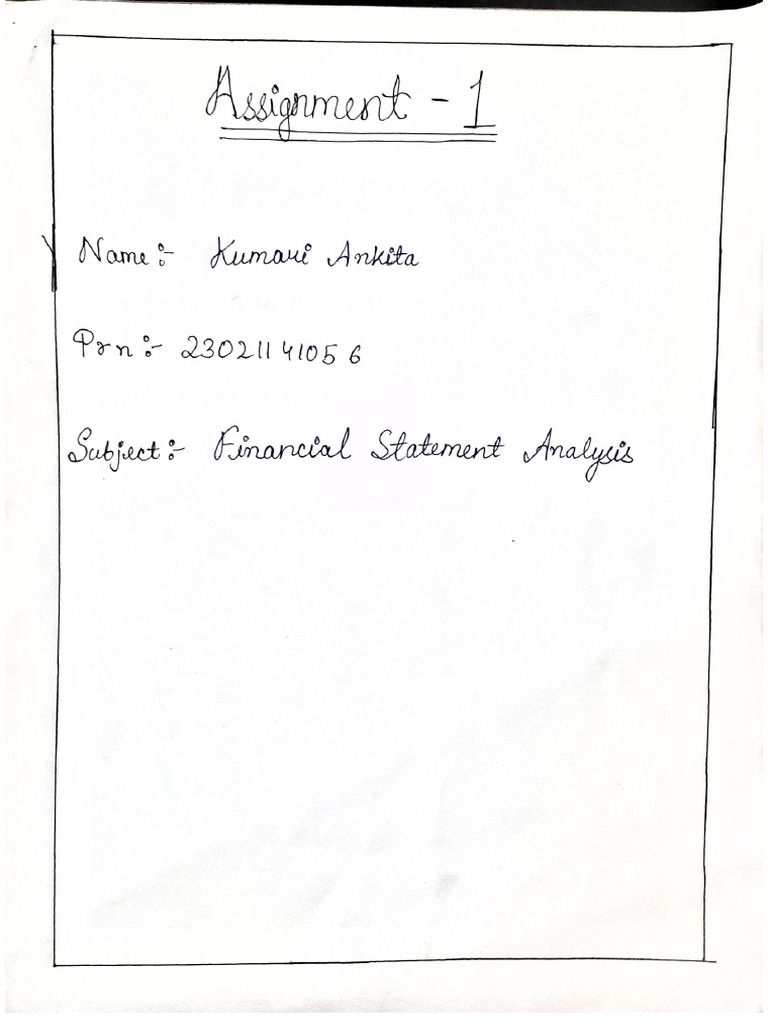 Assignment - 1
Name :- Kumari Ankita
Prn :- 23021141056
Subject :- Financial Statement Analysis